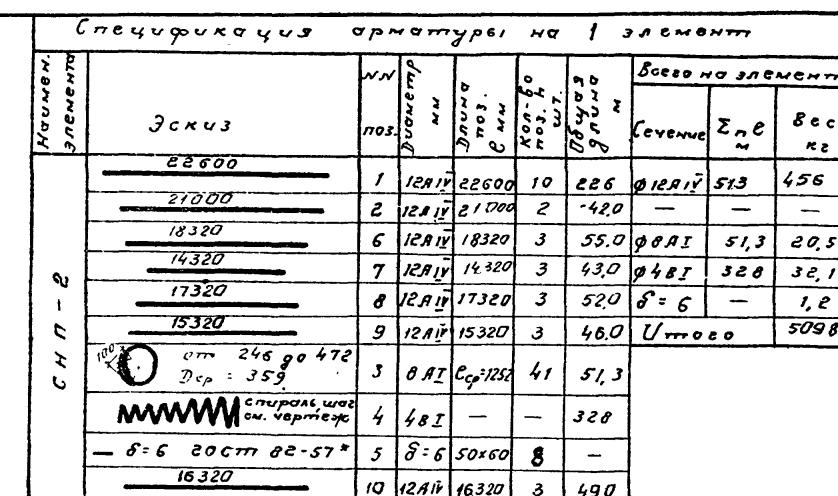 Спецификация арматуры на 1 элемент
Наимен. элемента Эскиз NN поз. Диаметр мм Длина поз. ℓ мм Кол-во поз. п шт. Общая длина м Всего на элемент
Сечение Σnℓ м Вес кг
СНП-2
22600 1 12AIV 22600 10 226 ф12AIV 513 456
21000 2 12AIV 21000 2 42,0 — — —
18320 6 12AIV 18320 3 55.0 ф8AI 51,3 20,5
14320 7 12AIV 14320 3 43,0 ф4BI 328 32,1
17320 8 12AIV 17320 3 52.0 δ=6 — 1,2
15320 9 12AIV 15320 3 46.0 Итого 509,8
100 от 246 до 472
Dср = 359 3 8AI ℓср=1252 41 51,3
спираль, шаг
см. чертеж 4 4BI — — 328
δ=6 гост 82-57* 5 δ=6 50x60 8 —
16320 10 12AIV 16320 3 49.0